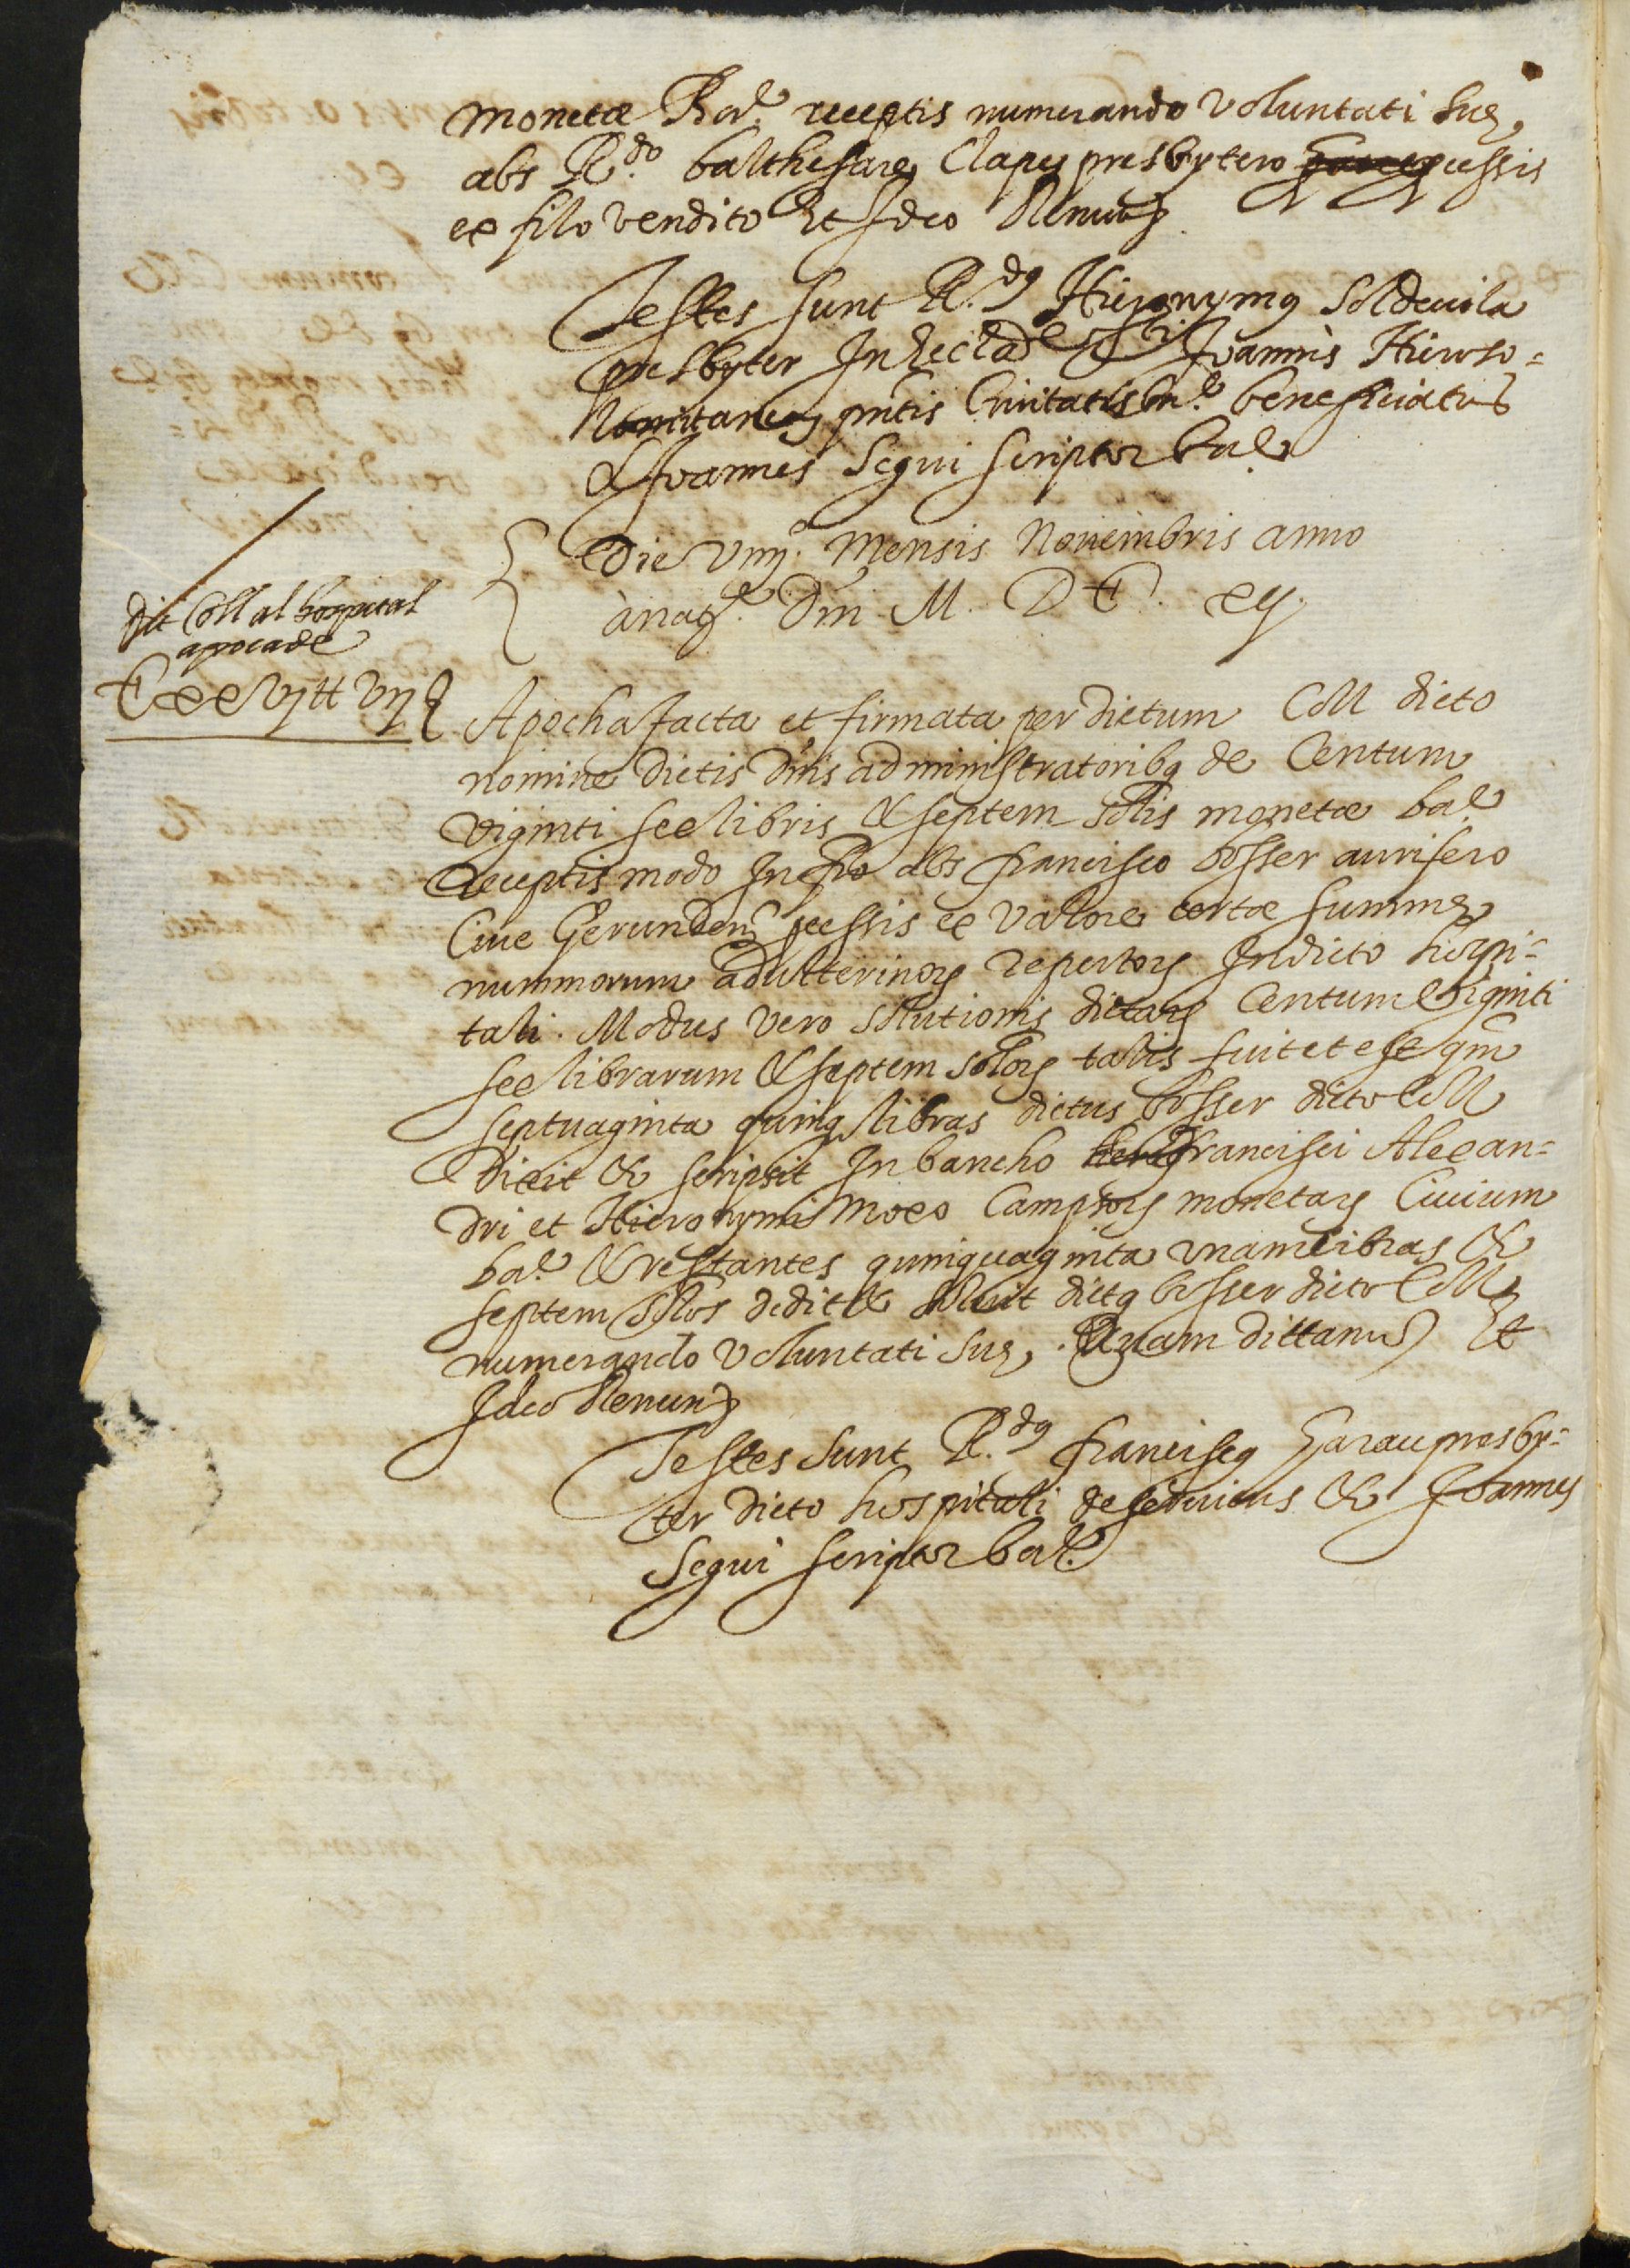 monetæ Bar.e receptis numerando voluntati suę,
abs R.do balthesare Clapes presbytero pcessis
ex filo vendito Et Ideo Renun
Testes sunt R.dus Hieronymus Soldevila
presbyter In Ecclã Sti Joannis Hieroso=
limitanȩ pñtis Civitatis Bar.e beneficiatus
& Joannes Segui scriptor bar.e
Die viiij.a Mensis Novembris anno
à nat.e Dñi M. D C. xj.
dit Coll al hospital
apoca de
C xx vj tt vij s
Apocha facta et firmata per dictum Coll dicto
nomine dictis Dñis administratoribus de Centum
viginti sex libris & septem solis monetæ bar.e
Receptis modo Infro abs francisco bosser aurifero
Cive Gerundeñ pcessis ex valore certæ summę
nummorum adulterinorum repertorum In dicto hospi=
tali. Modus vero solutionis dictarum Centum viginti
sex librarum & septem solorum talis fuit et est qm̃
septuaginta quinq libras dictus bosser dicto Coll
dixit & scripsit In bancho francisci Alexan=
dri et Hieronymi Moxo Campsorum monetarum Civium
bar.e & restantes quinquaginta unam libras &
septem solos dedit & solvit dictus bosser dicto Coll
numerando voluntati suę, . Quam dittamus Et
Ideo Renun
Testes sunt R.dus franciscus Garau presby=
ter dicto hospitali deserviens & Joannes
Segui scriptor bar.e